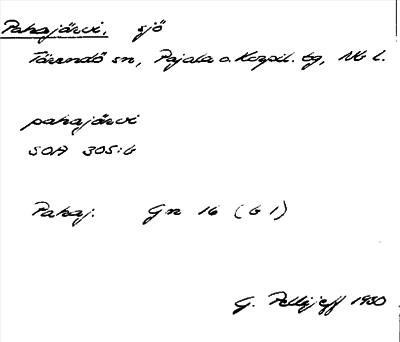 Pahajärvi, sjö
Tärendö sn, Pajala o. Korpil. tg, Nb l.
pahajärvi
SOA 305:6
Pahaj: Gn 16 (61)
G. Pellijeff 1980